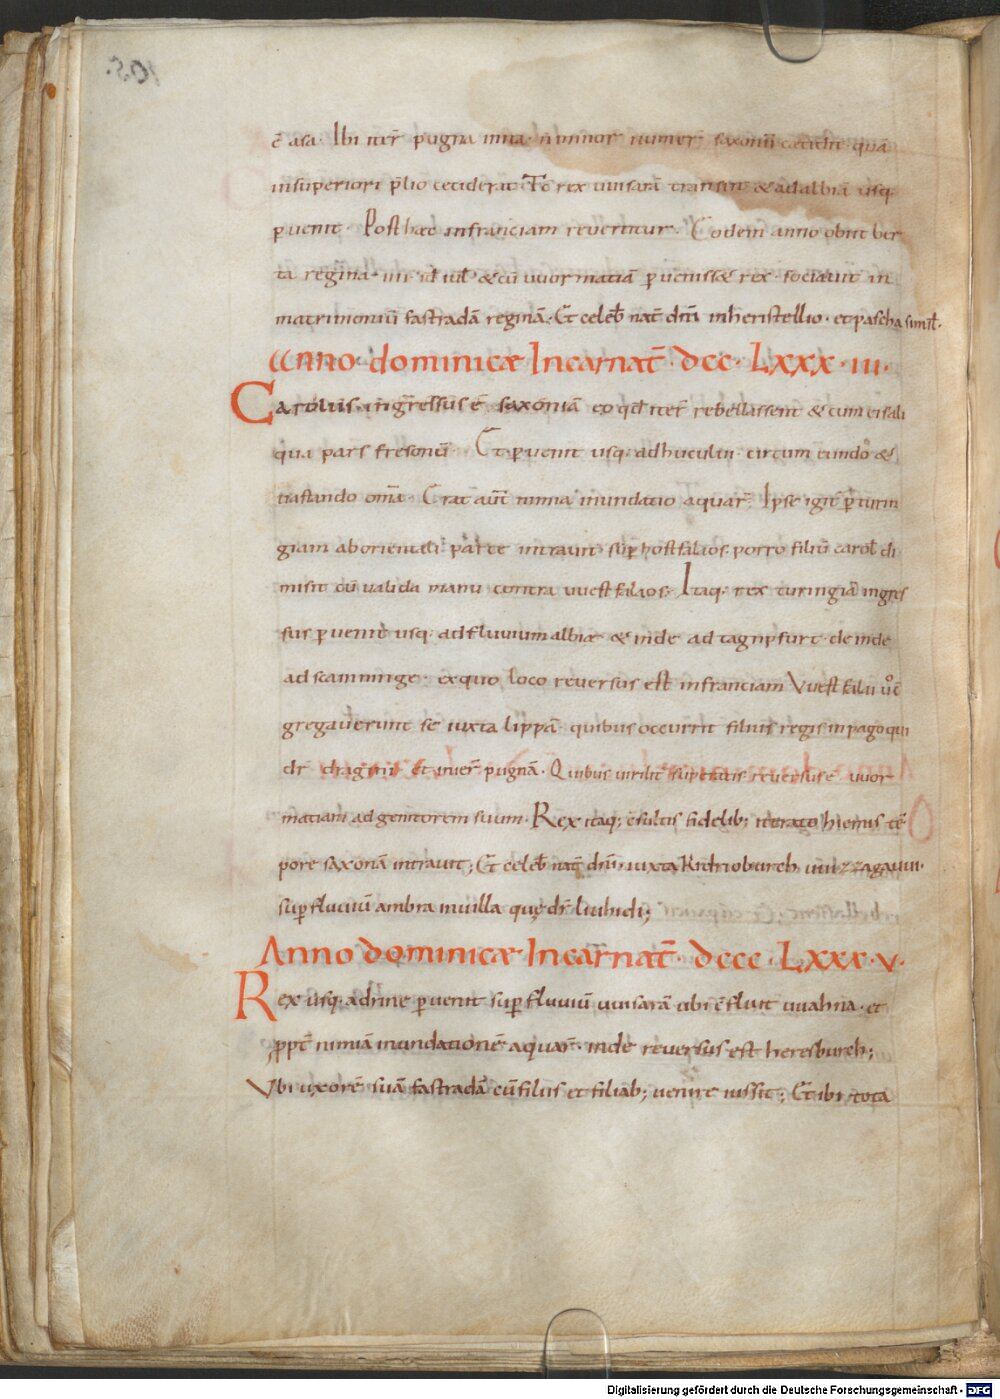 ē asa· Ibi iter̄ pugna inita· n̄ minor numer̄ saxonū cecidit quā
in superiori p̄lio ceciderat· Tc̄ rex uuisarā transiit & ad albiā usq·
puenit· Post hæc in franciam reuertitur· Eodem anno obiit ber
ta regina· iiii· id̄ iul̄· & cū uuormatiā puenissæ rex· sociauit in
matrimoniū fastradā reginā· Et celeb̄ nat̄ dnī in heristellio· et pascha simil̄·
Anno dominicæ Incarnat̄· dcc· Lxxx· iii·
Carolus· ingressus ē saxoniā eo qd̄ iter̄ rebellassent & cum eis ali
qua pars fresonū· Et puenit usq· ad huculin· circum eundo &
uastando om̄a· Erat aut̄ nimia inundatio aquar̄· Ipse igit̄ p turin
giam ab orientali parte intrauit sup hostfalaos· porro filiū carol̄ di
misit cū ualida manu contra uuestfalaos· Itaq· rex turingiā ingres
sus puenit usq· ad fluuium albiæ & inde ad tagnpfurt· de inde
ad scanninge· ex quo loco reuersus est in franciam Vuestfalii uō c̄
gregauerunt se iuxta lippā· quibus occurrit filius regis in pago qui
dr̄ dragini et inier̄ pugnā· Quibus uirilit̄ superatis reuersus ē uuor
matiam ad genitorem suum· Rex itaq; c̄sultis fidelib; iterato hiemis tē
pore saxoniā intrauit; Et celeb̄ nat̄ dnī iuxta Kidrioburch uuizzagauui·
sup fluuiū ambra in uilla quę dr̄ liuhidi;
Anno dominicæ Incarnat̄· dccc· Lxxx· v·
Rex usq· ad rine puenit sup fluuiū uuisarā ubi c̄fluit uuahna· et
ppt̄ nimiā inundationē aquar̄· inde reuersus est heresburch;
Vbi uxorē suā fastradā cū filiis et filiab; uenire iussit; Et ibi tota
Digitalisierung gefördert durch die Deutsche Forschungsgemeinschaft - DFG